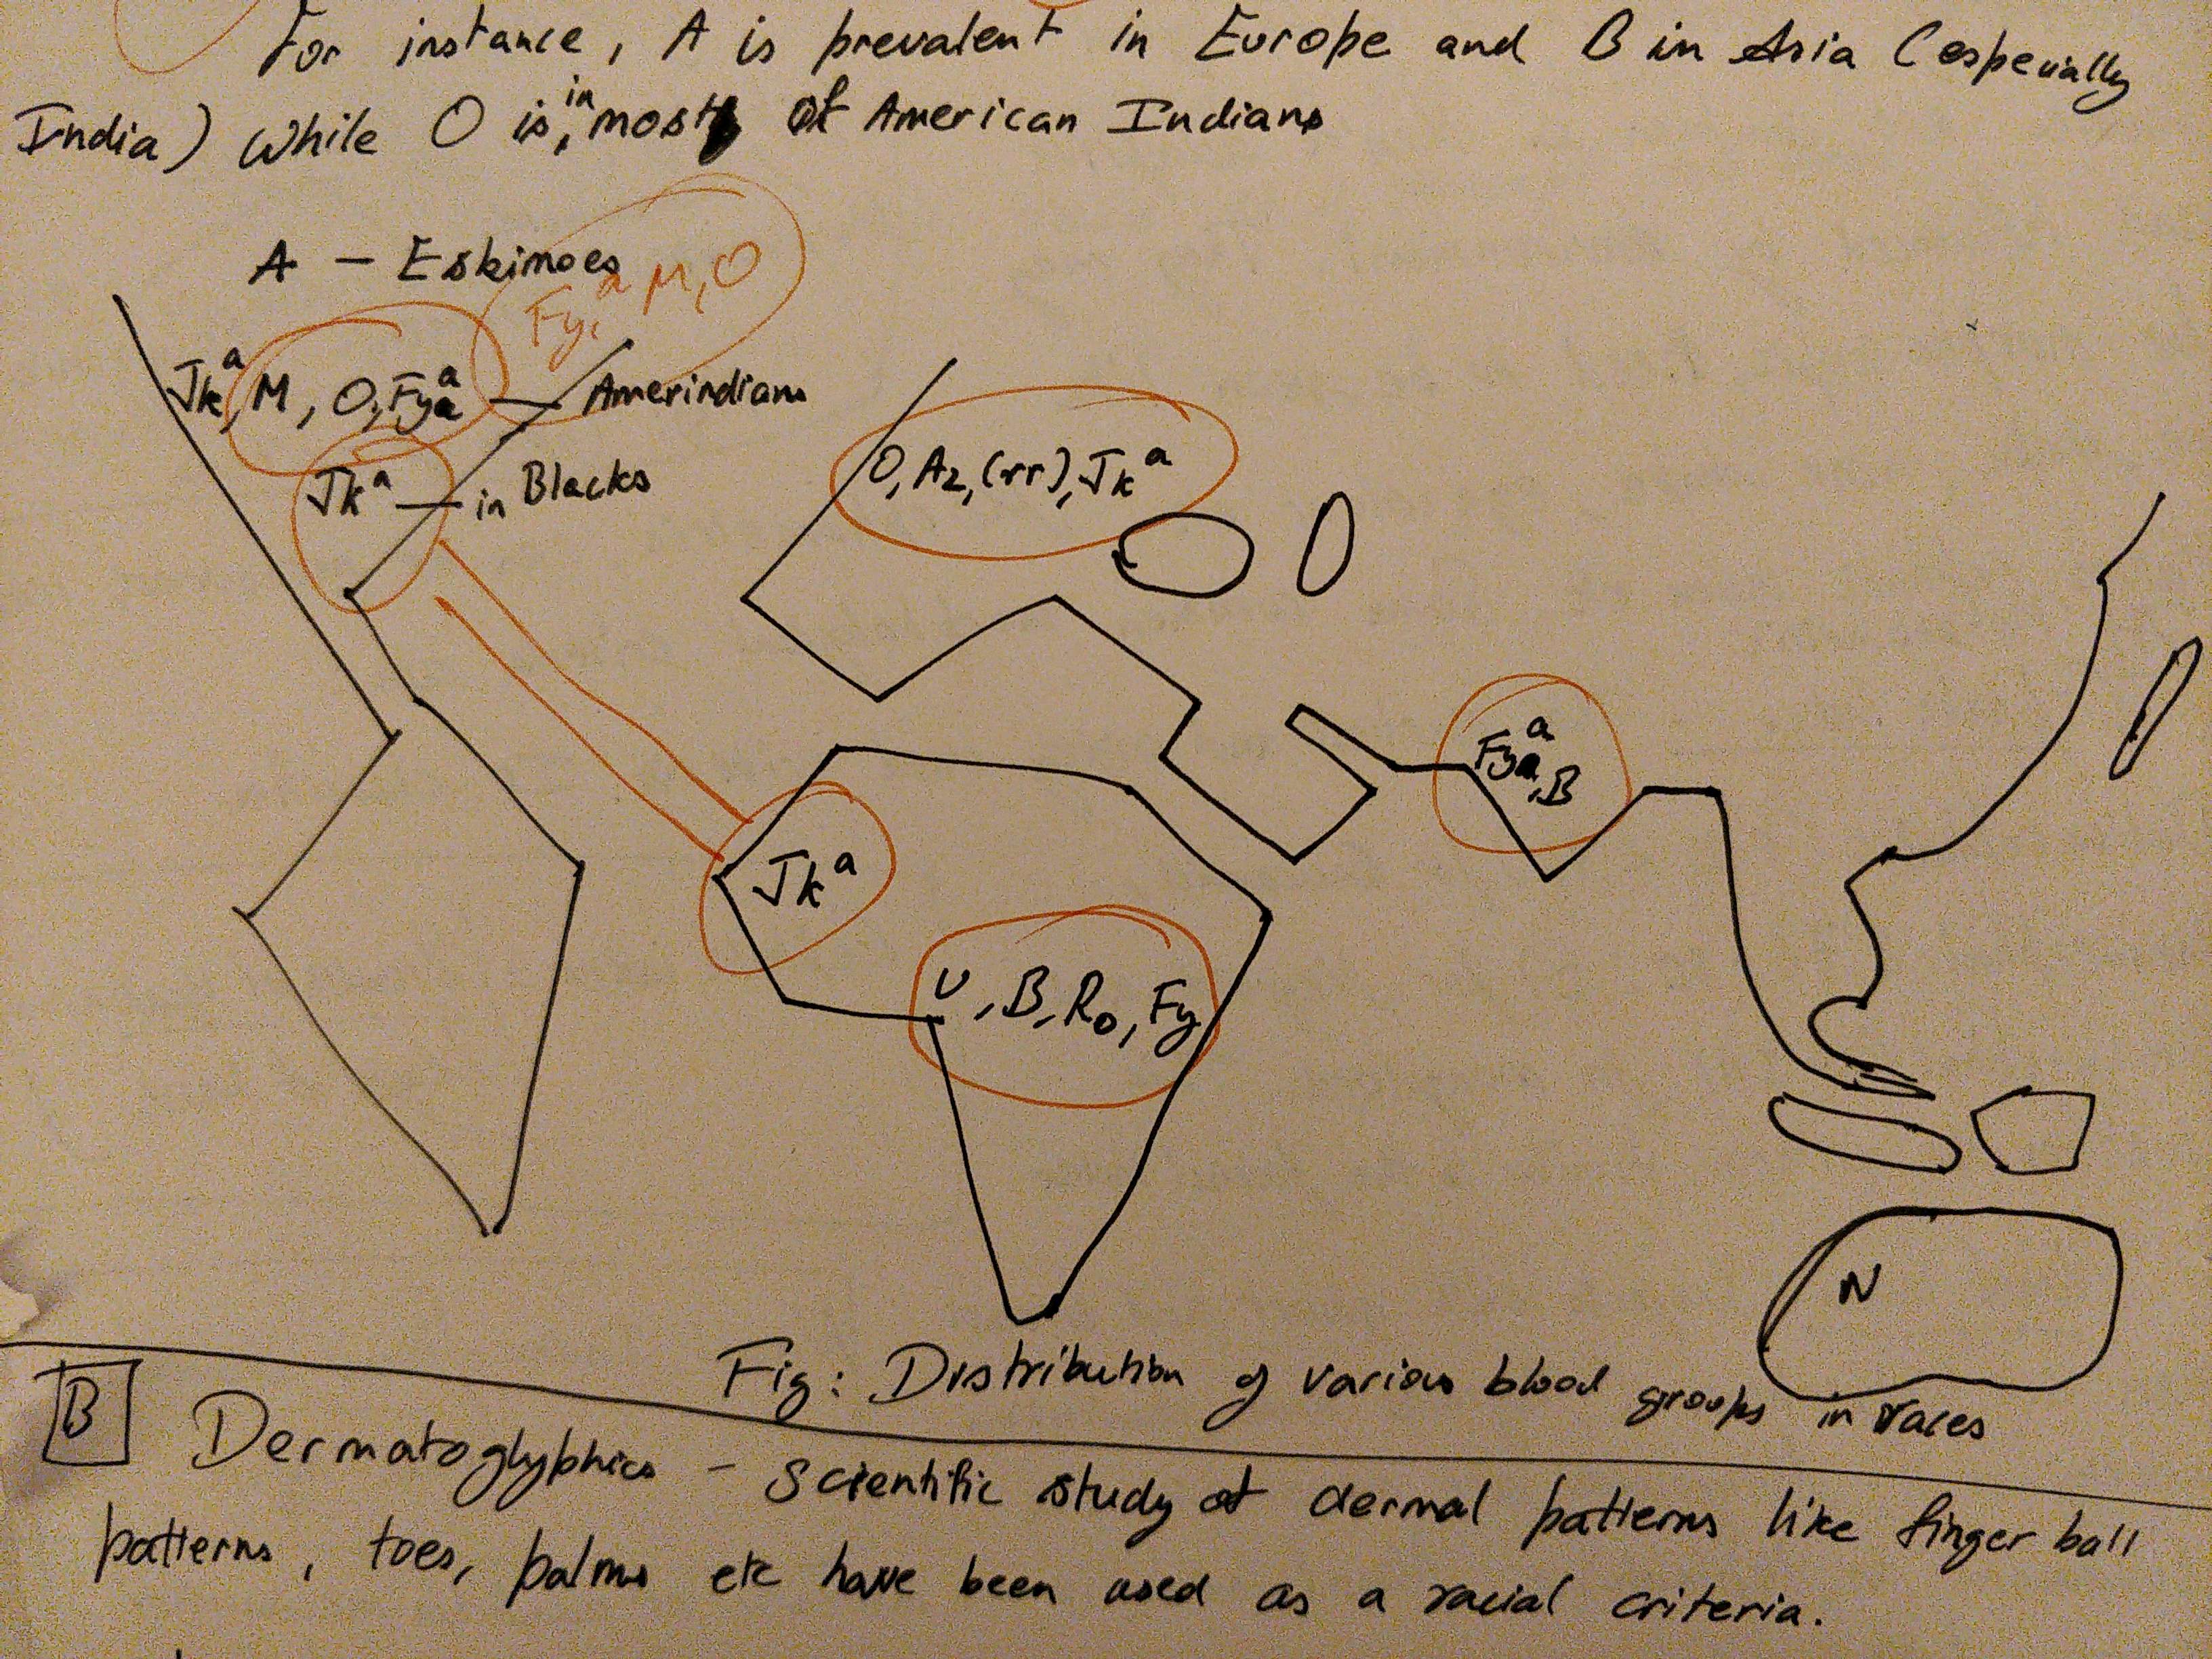 For instance, A is prevalent in Europe and B in Asia (especially
India) while O is in most of American Indians
A – Eskimoes
Fyᵃ, M, O
Jkᵃ, M, O, Fyᵃ — Amerindians
Jkᵃ — in Blacks
O, A₂, (rr), Jkᵃ
Fyᵃ, B
Jkᵃ
U, B, R₀, Fy
N
Fig: Distribution of various blood groups in races
B Dermatoglyphics – scientific study of dermal patterns like finger ball
patterns, toes, palms etc have been used as a racial criteria.